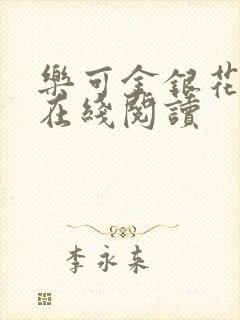 樂可金銀花
在綫閱讀
李永来